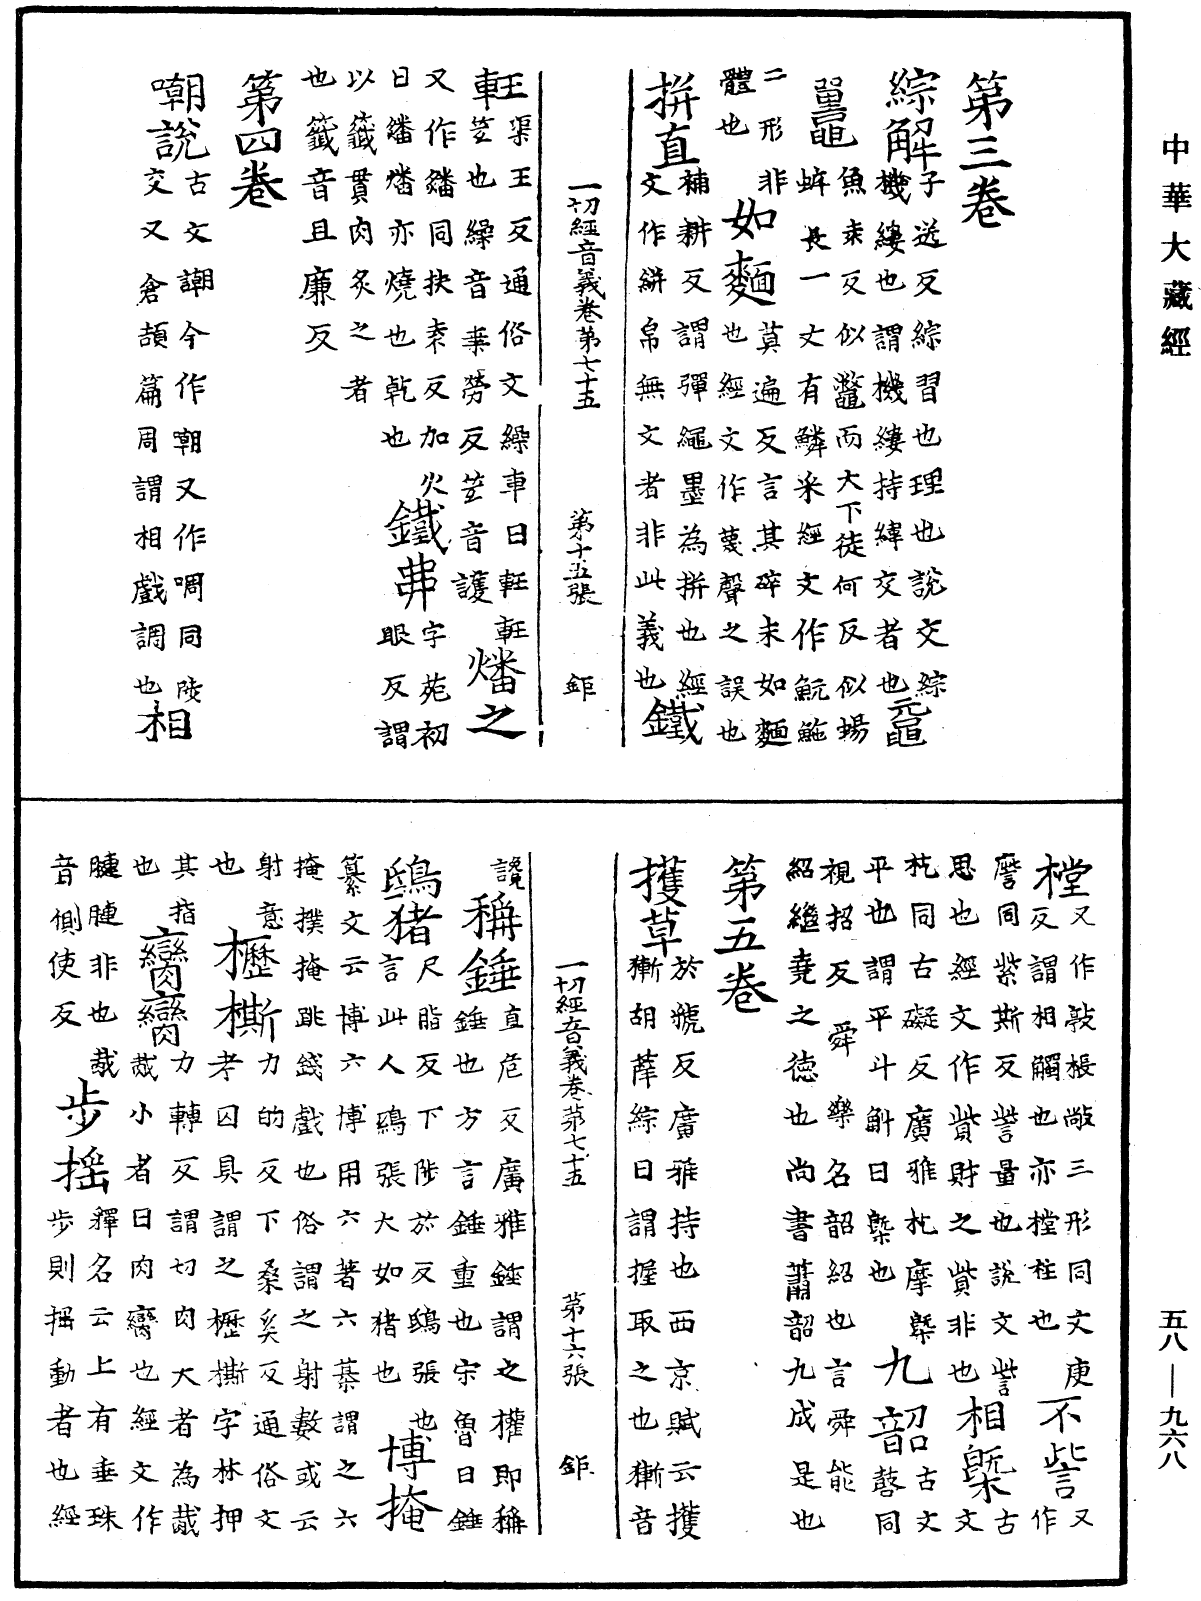 中華大藏經
五八—九六八
第三卷
綜解
子送反綜習也理也說交綜
機縷也謂機縷持緯交者也
黿
鼉
魚袁反似鼈而大下徒何反似蜴
蛑長一丈有鱗采經文作魭鮀
二形非
體也
如麵
莫遍反言其碎末如麵
也經文作蔑聲之誤也
拼直
補耕反謂彈繩墨為拼也經
文作絣帛無文者非此義也
鐵
一切經音義卷第七十五 第十五張 鉅
軖
渠王反通俗文繰車曰軖軖
笠也繰音桒勞反笠音護
燔之
又作䥗同扶袁反加火
曰䥗燔亦燒也乾也
鐵弗
字苑初
眼反謂
以籤貫肉炙之者
也籤音且廉反
第四卷
嘲說
古文謿今作嘲又作啁同陵
交又倉頡篇周謂相戲調也
相
樘
又作敼棖敞三形同丈庚
反謂相觸也亦樘柱也
不訾
又
作
訾同紫斯反訾量也說文訾
思也經文作貲財之貲非也
相槩
古
文
杚同古礙反廣雅杚摩槩
平也謂平斗斛曰槩也
九韶
古文
磬同
視招反舜樂名韶紹也言舜能
紹繼堯之德也尚書簫韶九成是也
第五卷
擭草
於虢反廣雅持也西京賦云擭
獑胡薛綜曰謂握取之也獑音
讒
稱錘
直危反廣雅錘謂之權即稱
錘也方言錘重也宋魯曰錘
鴟猪
尺脂反下陟於反鴟張也
言此人鴟張大如猪也
博掩
纂文云博六博用六著六棊謂之六
掩撲掩跳錢戲也俗謂之射數或云
射意
也
櫪㯕
力的反下桑奚反通俗文
考囚具謂之櫪㯕字林押
其指
也
臠臠
力轉反謂切肉大者為胾
胾小者曰肉臠也經文作
腱腱非也胾
音側使反
步搖
釋名云上有垂珠
步則搖動者也經